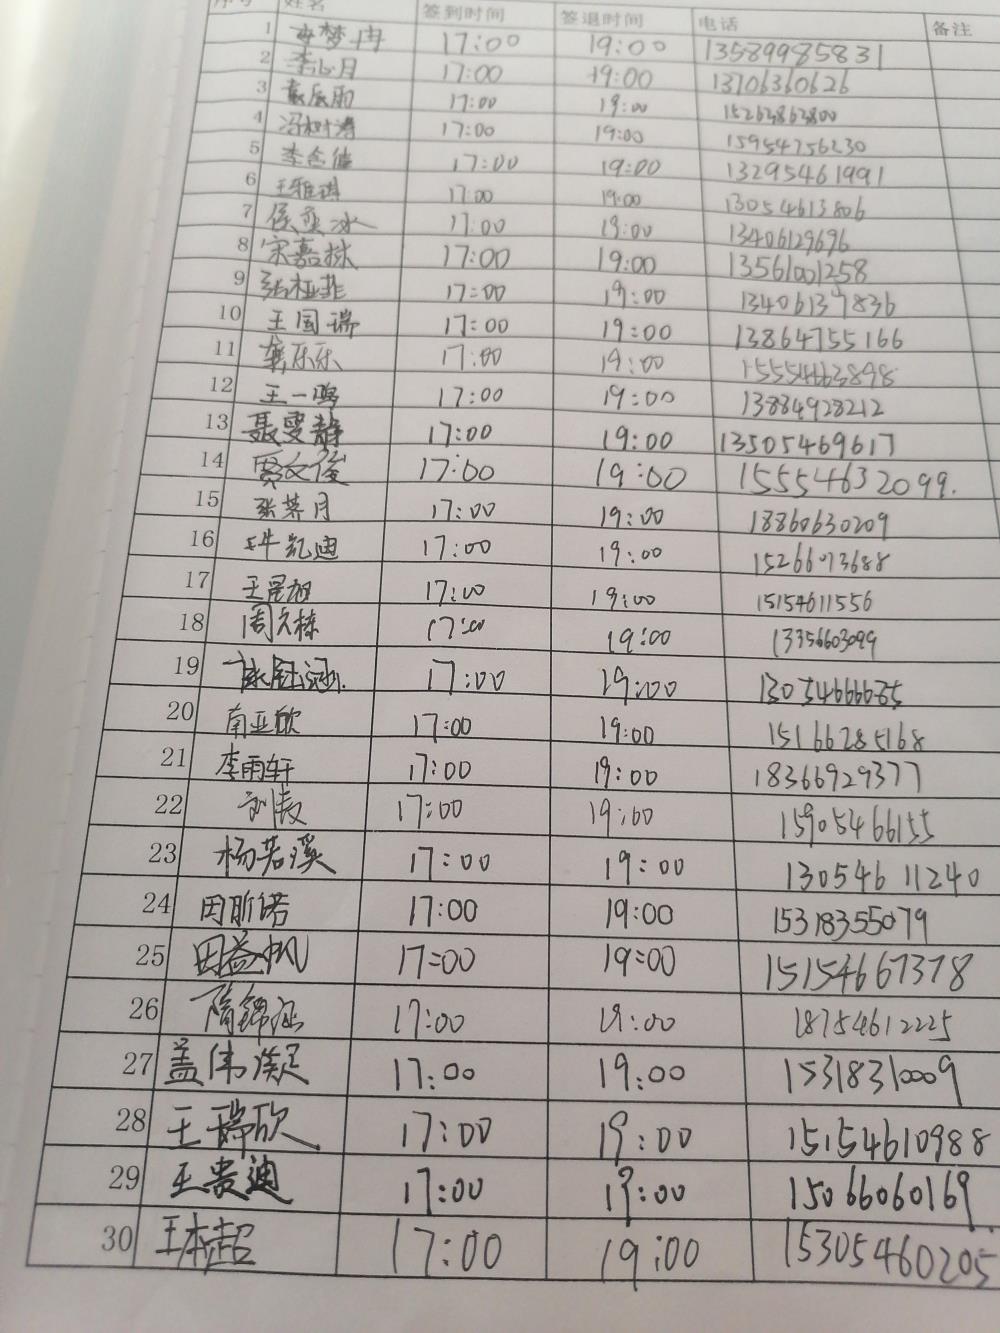 序号 姓名 签到时间 签退时间 电话 备注
1 17:00 19:00 13589985831
2 李心月 17:00 19:00 13706360626
3 17:00 19:00 15263863800
4 冯树涛 17:00 19:00 15954756230
5 李念信 17:00 19:00 13295461991
6 王雅琪 17:00 19:00 13054613806
7 17:00 19:00 13406129696
8 宋嘉栋 17:00 19:00 13561001258
9 张桠菲 17:00 19:00 13406139836
10 王国瑞 17:00 19:00 13864755166
11 龚乐乐 17:00 19:00 15554663898
12 王一鸣 17:00 19:00 13884928212
13 聂雯静 17:00 19:00 13505469617
14 贾文俊 17:00 19:00 15554632099.
15 张荠月 17:00 19:00 18860630209
16 牛凯迪 17:00 19:00 15266013688
17 王昱旭 17:00 19:00 15154611556
18 周文栋 17:00 19:00 13356603099
19 17:00 19:00 13054666685
20 南亚欣 17:00 19:00 15166285168
21 李雨轩 17:00 19:00 18366929377
22 17:00 19:00 15905466155
23 杨若溪 17:00 19:00 13054611240
24 田昕诺 17:00 19:00 15318355079
25 田益帆 17:00 19:00 15154667378
26 隋锦泓 17:00 19:00 18754612225
27 盖伟凝 17:00 19:00 15318310009
28 王瑞欣 17:00 19:00 15154610988
29 王贵迪 17:00 19:00 15066060169
30 王本超 17:00 19:00 15305460205